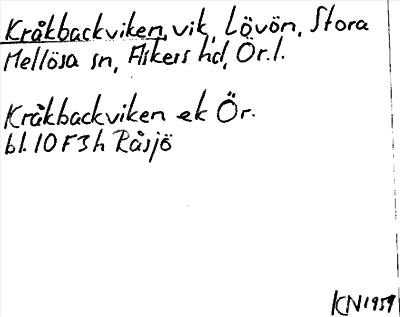 Kråkbackviken, vik, Lövön, Stora
Mellösa sn, Askers hd, Ör.l.
Kråkbackviken ek Ör.
bl. 10 F 3 h Råsjö
KN 1959